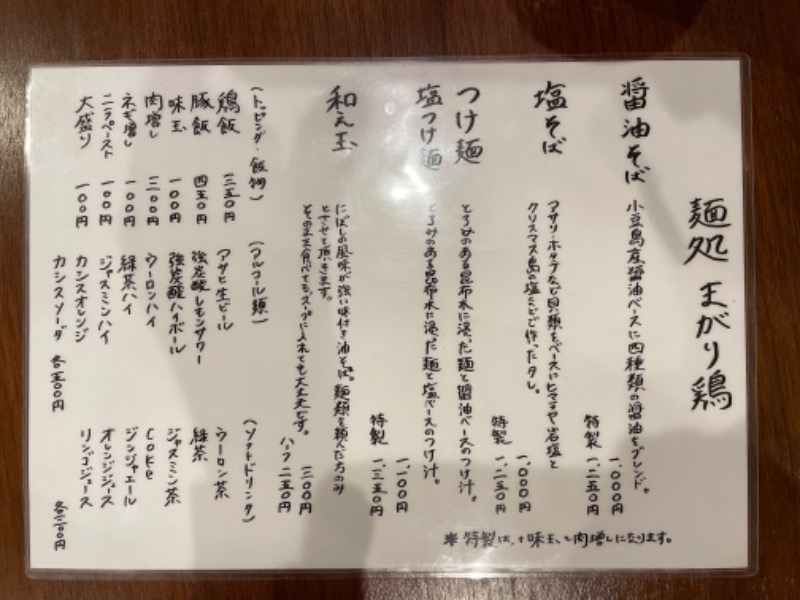 麺処 まがり鶏
醤油そば
小豆島産醤油ベースに四種類の醤油をブレンド。
一、〇〇〇円
特製 一、二五〇円
塩そば
アサリ・ホタテなど貝類をベースにヒマラヤ岩塩と
クリスマス島の塩などで作ったタレ。
一、〇〇〇円
特製 一、二五〇円
つけ麺
とろみのある昆布水に浸った麺と醤油ベースのつけ汁。
塩つけ麺
とろみのある昆布水に浸った麺と塩ベースのつけ汁。
一、一〇〇円
特製 一、三五〇円
和え玉
にぼしの風味が強い味付き油そば。麺類を頼んだ方のみ
とさせて頂きます。
そのまま食べても、スープに入れても大丈夫です。
三〇〇円
ハーフ 二五〇円
※ 特製は、+味玉、と肉増しになります。
(トッピング・飯物)
鶏飯 三五〇円
豚飯 四五〇円
味玉 一〇〇円
肉増し 三〇〇円
ネギ増し 一〇〇円
ニラペースト 一〇〇円
大盛り 一〇〇円
(アルコール類)
アサヒ生ビール
強炭酸レモンサワー
強炭酸ハイボール
ウーロンハイ
緑茶ハイ
ジャスミンハイ
カシスオレンジ
カシスソーダ
各五〇〇円
(ソフトドリンク)
ウーロン茶
緑茶
ジャスミン茶
Coke
ジンジャエール
オレンジジュース
リンゴジュース
各二〇〇円